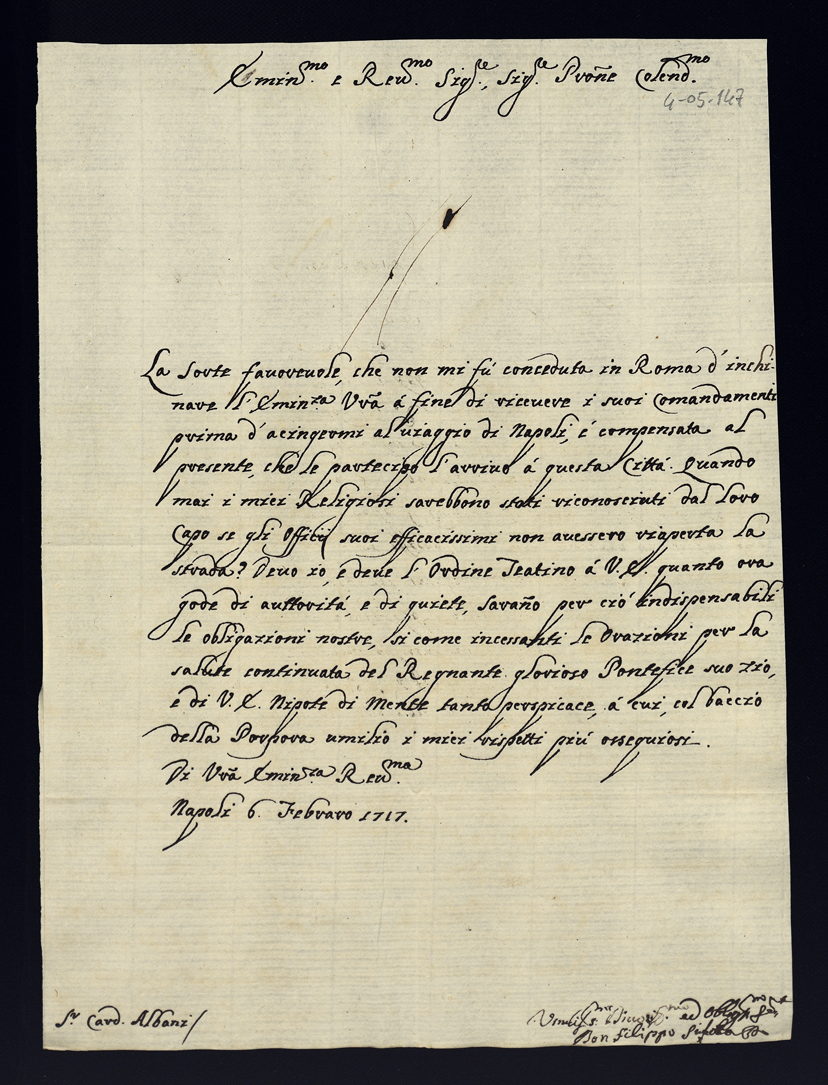 Emin.mo e Reu.mo Sig.re, Sig.re Prone Colend.mo
4-05-147
La sorte fauoreuole, che non mi fú conceduta in Roma d'inchi-
nare l'Emin.za Vrã á fine di riceuere i suoi Comandamenti
prima d'acingermi al uiaggio di Napoli, é compensata al
presente, che le partecipo l'arriuo á questa Cittá. Quando
mai i miei Religiosi sarebbono stati riconosciuti dal loro
Capo se gli Officij suoi efficacissimi non auessero riaperta la
strada? Deuo io, e deue l'Ordine Teatino á V.E. quanto ora
gode di auttoritá, e di quiete, sarano per ció indispensabili
le obligazioni nostre, si come incessanti le Orazioni per la
salute continuata del Regnante glorioso Pontefice suo zio,
e di V.E. Nipote di Mente tanto perspicace, á cui, col baccio
della Porpora umilio i miei rispetti piú ossequiosi.
Di Vrã Emin.za Reu.ma
Napoli 6. Febraro 1717.
S.r Card. Albani/
ed Oblig.mo
Don Filippo